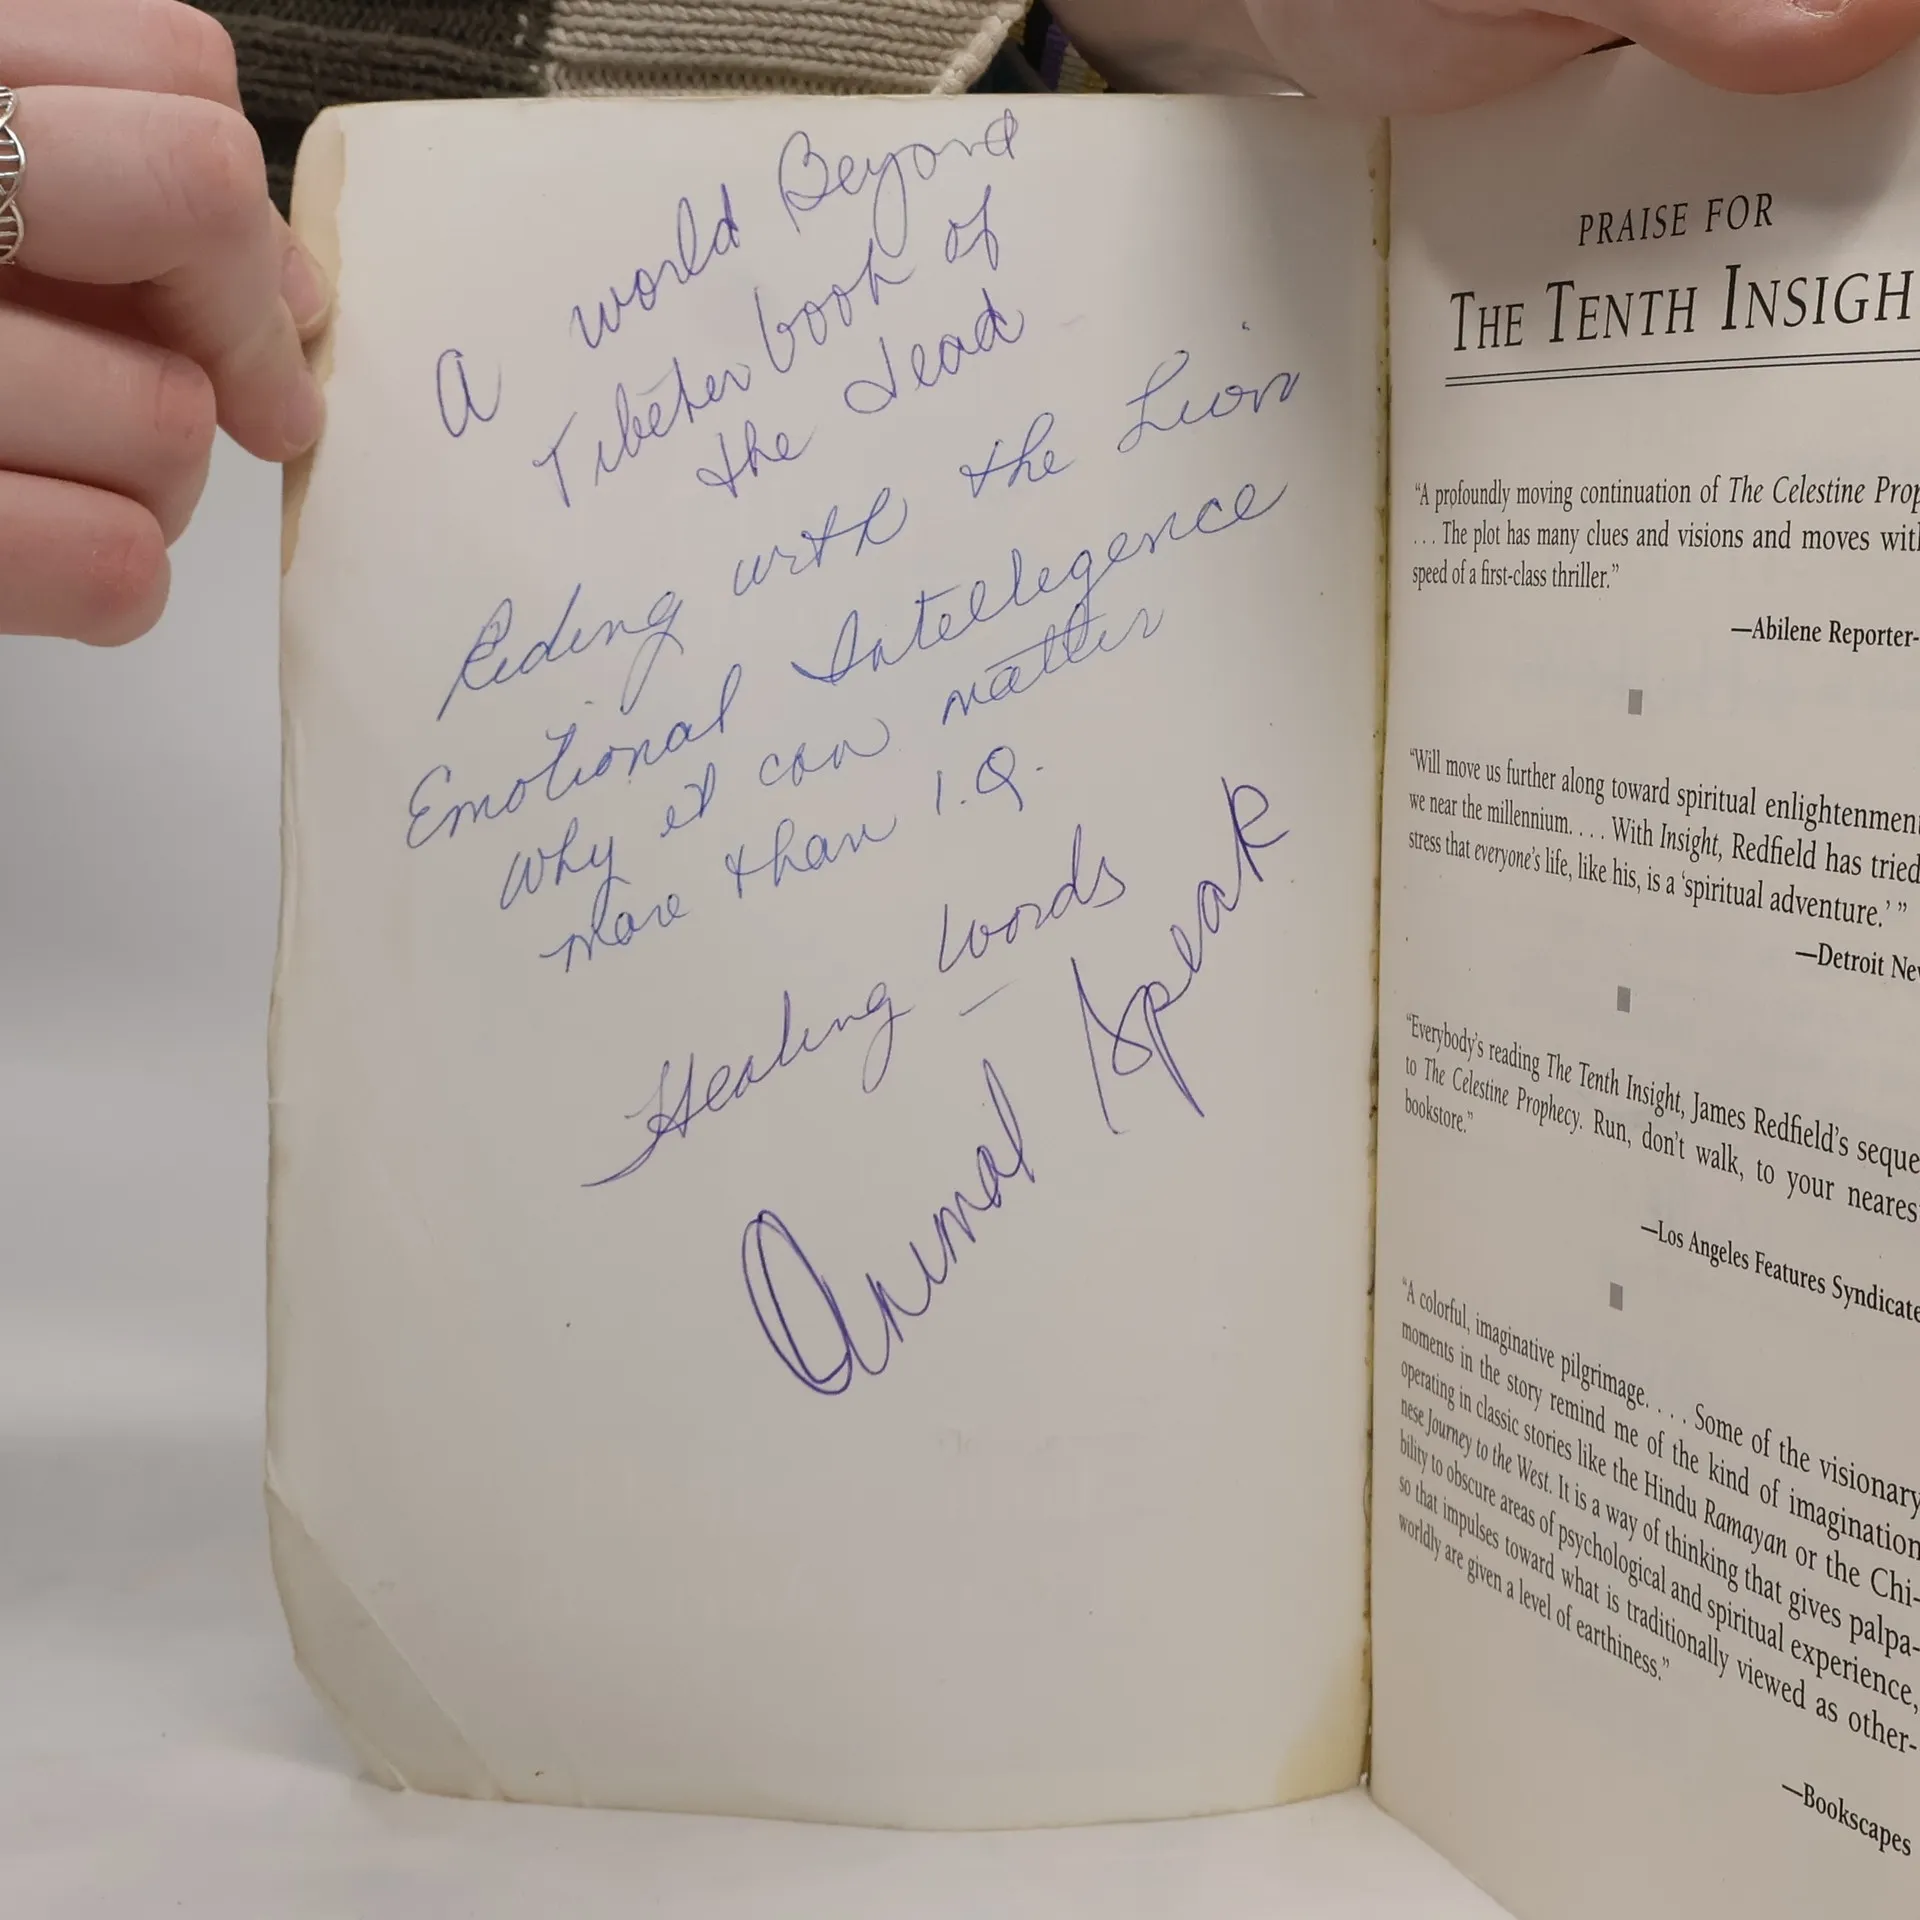 A world Beyond
Tibeten book of
the dead
Riding with the Lion
Emotional Intellegence
why it can matter
more than I.Q.
Healing words
Animal Speak
PRAISE FOR
THE TENTH INSIGH
“A profoundly moving continuation of The Celestine Prop
. . . The plot has many clues and visions and moves with
speed of a first-class thriller.”
—Abilene Reporter-
“Will move us further along toward spiritual enlightenmen
we near the millennium. . . . With Insight, Redfield has tried
stress that everyone’s life, like his, is a ‘spiritual adventure.’ ”
—Detroit Ne
“Everybody’s reading The Tenth Insight, James Redfield’s seque
to The Celestine Prophecy. Run, don’t walk, to your neares
bookstore.”
—Los Angeles Features Syndicate
“A colorful, imaginative pilgrimage. . . . Some of the visionary
moments in the story remind me of the kind of imagination
operating in classic stories like the Hindu Ramayan or the Chi-
nese Journey to the West. It is a way of thinking that gives palpa-
bility to obscure areas of psychological and spiritual experience,
so that impulses toward what is traditionally viewed as other-
worldly are given a level of earthiness.”
—Bookscapes